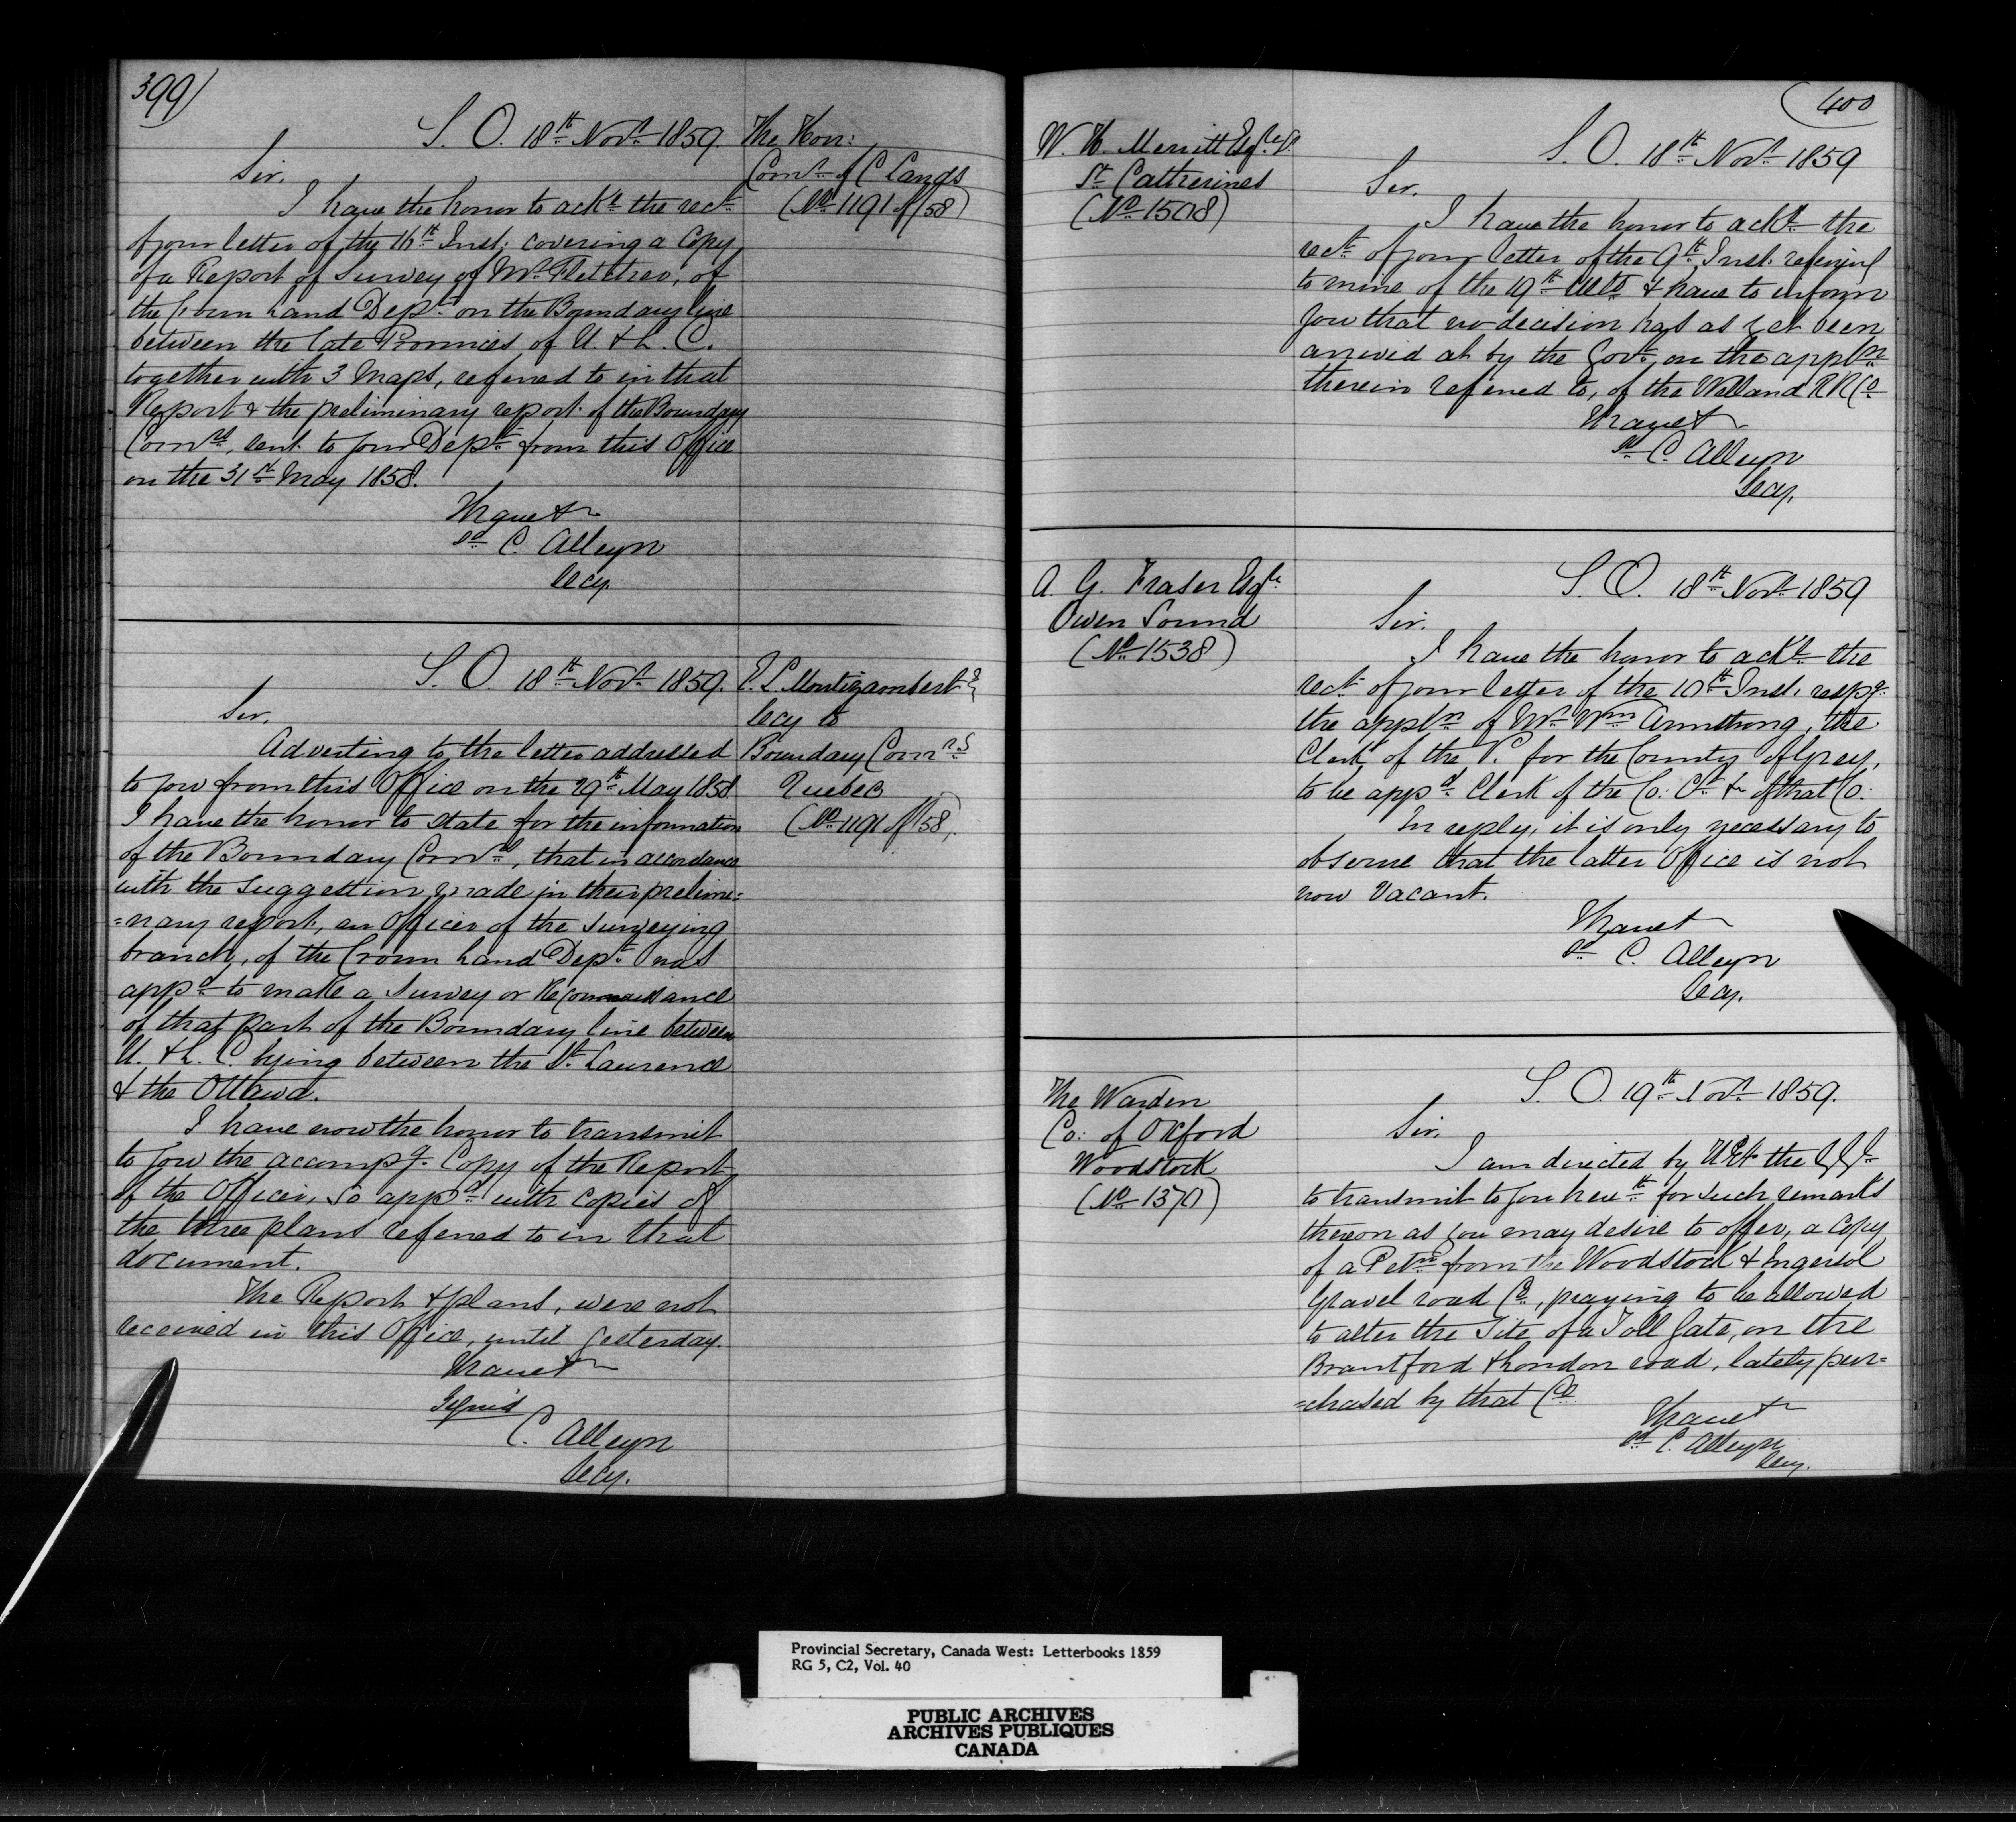 399)
S. O. 18th Novr 1859.
The Hon:
Comr of C. Lands
(No 1191 of /58)
Sir.
I have the honor to ackn the rect
of your letter of the 16th Inst: covering a Copy
of a Report of Survey of Mr Fletcher, of
the Crown Land Dept on the Boundary line
between the late Provinces of U. & L. C.
together with 3 Maps, referred to in that
Report & the preliminary report of the Boundary
Comrs, sent to your Dept from this Office
on the 31st May 1858.
I have &c
sd C. Alleyn
Secy.
S. O. 18th Novr 1859.
E. L. Montizambert E
Secy to
Boundary Comrs
Quebec
(No 1191 of /58)
Sir.
Adverting to the letter addressed
to you from this Office on the 29th May 1858
I have the honor to state for the information
of the Boundary Comrs, that in accordance
with the suggestion made in their prelimi=
=nary report, an Officer of the Surveying
branch, of the Crown Land Dept was
appd to make a Survey or Reconnaissance
of that part of the Boundary line between
U. & L. C. lying between the St. Lawrence
& the Ottawa.
I have now the honor to transmit
to you the accompg. Copy of the Report
of the Officer, so appd with copies of
the three plans referred to in that
document.
The Report & plans, were not
received in this Office, until yesterday.
I have &c
Signed
C. Alleyn
Secy.
(400
W. H. Merritt Esqre
St Catherines
(No 1508)
S. O. 18th Novr 1859
Sir.
I have the honor to ackn the
rect of your letter of the 9th Inst. referring
to mine of the 19th Ulto & have to inform
you that no decision has as yet been
arrived at by the Govt on the appln
therein referred to, of the Welland R R Co
I have &c
sd C. Alleyn
Secy.
A. G. Fraser Esqe
Owen Sound
(No 1538)
S. O. 18th Novr 1859
Sir.
I have the honor to ackn the
rect of your letter of the 10th Inst. respg
the appln of Mr Wm Armstrong, the
Clerk of the P. for the County of Grey,
to be appd Clerk of the Co: Ct &c of that Co:
In reply, it is only necessary to
observe that the latter Office is not
now vacant.
I have &c
sd C. Alleyn
Secy.
The Warden
Co: of Oxford
Woodstock
(No 1370)
S. O. 19th Novr 1859.
Sir.
I am directed by H E the G G
to transmit to you hewth for such remarks
thereon as you may desire to offer, a Copy
of a Petn from the Woodstock & Ingersol
Gravel road Co, praying to be allowed
to alter the Site of a Toll Gate, on the
Brantford & London road, lately pur=
=chased by that Co
I have &c
sd C. Alleyn
Secy.
Provincial Secretary, Canada West: Letterbooks 1859
RG 5, C2, Vol. 40
PUBLIC ARCHIVES
ARCHIVES PUBLIQUES
CANADA